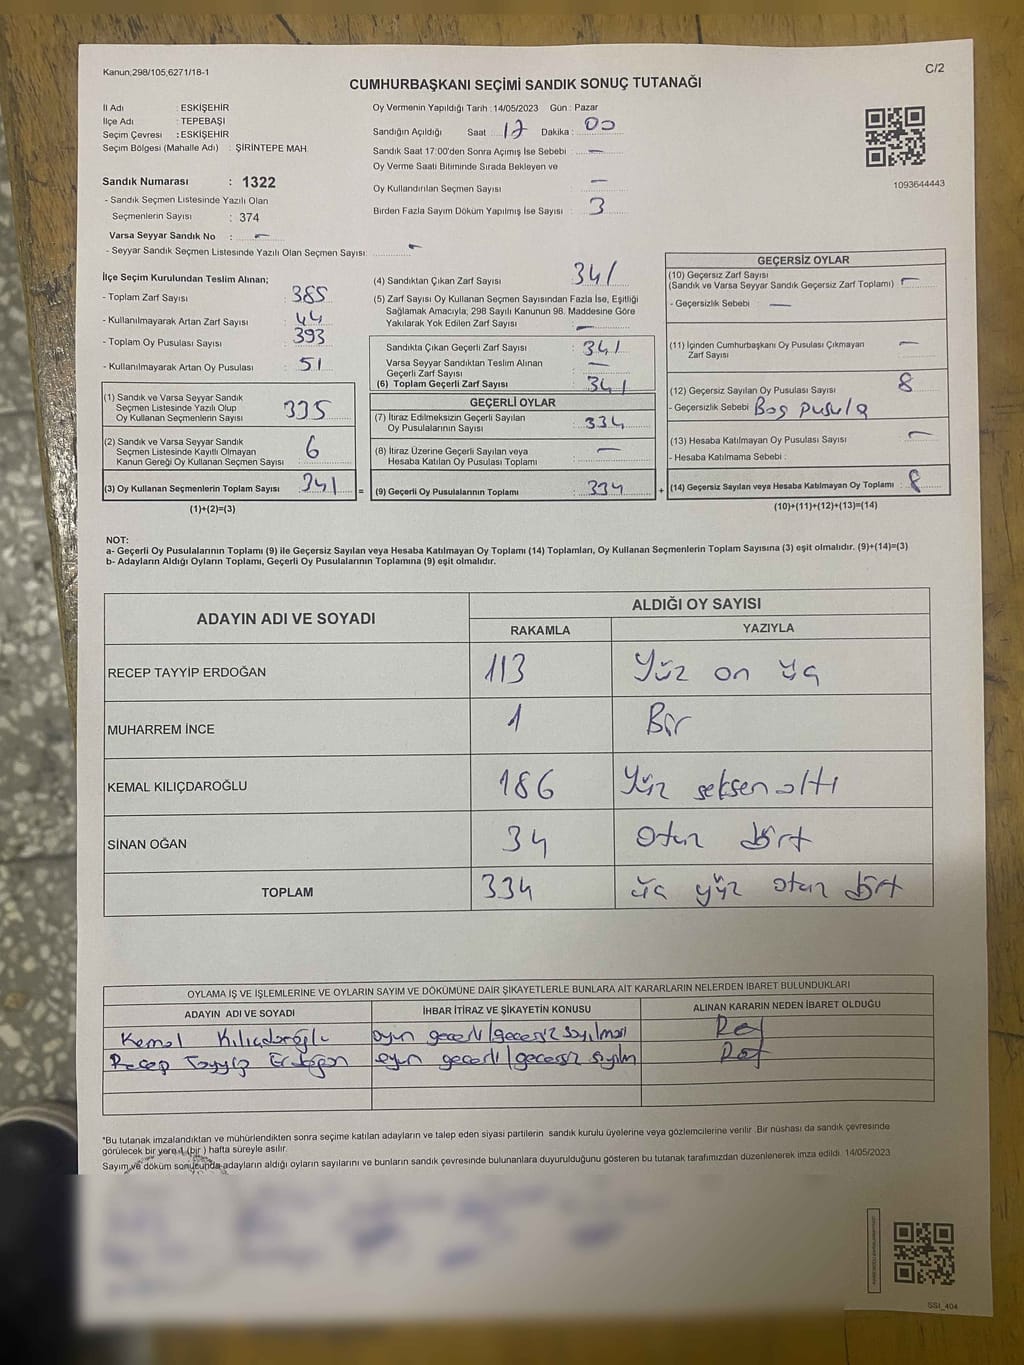 Kanun;298/105,6271/18-1
C/2
CUMHURBAŞKANI SEÇİMİ SANDIK SONUÇ TUTANAĞI
İl Adı : ESKİŞEHİR
İlçe Adı : TEPEBAŞI
Seçim Çevresi : ESKİŞEHİR
Seçim Bölgesi (Mahalle Adı) : ŞİRİNTEPE MAH.
Sandık Numarası : 1322
- Sandık Seçmen Listesinde Yazılı Olan
Seçmenlerin Sayısı : 374
Varsa Seyyar Sandık No : -
- Seyyar Sandık Seçmen Listesinde Yazılı Olan Seçmen Sayısı: -
Oy Vermenin Yapıldığı Tarih : 14/05/2023 Gün : Pazar
Sandığın Açıldığı Saat : 17 Dakika : 00
Sandık Saat 17:00'den Sonra Açımış İse Sebebi : -
Oy Verme Saati Bitiminde Sırada Bekleyen ve
Oy Kullandırılan Seçmen Sayısı : -
Birden Fazla Sayım Döküm Yapılmış İse Sayısı : 3
1093644443
İlçe Seçim Kurulundan Teslim Alınan;
- Toplam Zarf Sayısı : 385
- Kullanılmayarak Artan Zarf Sayısı : 44
- Toplam Oy Pusulası Sayısı : 393
- Kullanılmayarak Artan Oy Pusulası : 51
(1) Sandık ve Varsa Seyyar Sandık
Seçmen Listesinde Yazılı Olup
Oy Kullanan Seçmenlerin Sayısı : 335
(2) Sandık ve Varsa Seyyar Sandık
Seçmen Listesinde Kayıtlı Olmayan
Kanun Gereği Oy Kullanan Seçmen Sayısı : 6
(3) Oy Kullanan Seçmenlerin Toplam Sayısı : 341
(1)+(2)=(3)
(4) Sandıktan Çıkan Zarf Sayısı : 341
(5) Zarf Sayısı Oy Kullanan Seçmen Sayısından Fazla İse, Eşitliği
Sağlamak Amacıyla; 298 Sayılı Kanunun 98. Maddesine Göre
Yakılarak Yok Edilen Zarf Sayısı : -
Sandıkta Çıkan Geçerli Zarf Sayısı : 341
Varsa Seyyar Sandıktan Teslim Alınan
Geçerli Zarf Sayısı : -
(6) Toplam Geçerli Zarf Sayısı : 341
GEÇERLİ OYLAR
(7) İtiraz Edilmeksizin Geçerli Sayılan
Oy Pusulalarının Sayısı : 334
(8) İtiraz Üzerine Geçerli Sayılan veya
Hesaba Katılan Oy Pusulası Toplamı : -
= (9) Geçerli Oy Pusulalarının Toplamı : 334
GEÇERSİZ OYLAR
(10) Geçersiz Zarf Sayısı
(Sandık ve Varsa Seyyar Sandık Geçersiz Zarf Toplamı) : -
- Geçersizlik Sebebi : -
(11) İçinden Cumhurbaşkanı Oy Pusulası Çıkmayan
Zarf Sayısı : -
(12) Geçersiz Sayılan Oy Pusulası Sayısı : 8
- Geçersizlik Sebebi : Boş pusula
(13) Hesaba Katılmayan Oy Pusulası Sayısı : -
- Hesaba Katılmama Sebebi :
+ (14) Geçersiz Sayılan veya Hesaba Katılmayan Oy Toplamı : 8
(10)+(11)+(12)+(13)=(14)
NOT:
a- Geçerli Oy Pusulalarının Toplamı (9) ile Geçersiz Sayılan veya Hesaba Katılmayan Oy Toplamı (14) Toplamları, Oy Kullanan Seçmenlerin Toplam Sayısına (3) eşit olmalıdır. (9)+(14)=(3)
b- Adayların Aldığı Oyların Toplamı, Geçerli Oy Pusulalarının Toplamına (9) eşit olmalıdır.
ADAYIN ADI VE SOYADI
ALDIĞI OY SAYISI
RAKAMLA YAZIYLA
RECEP TAYYİP ERDOĞAN 113 Yüz on üç
MUHARREM İNCE 1 Bir
KEMAL KILIÇDAROĞLU 186 Yüz seksen altı
SİNAN OĞAN 34 Otuz dört
TOPLAM 334 üç yüz otuz dört
OYLAMA İŞ VE İŞLEMLERİNE VE OYLARIN SAYIM VE DÖKÜMÜNE DAİR ŞİKAYETLERLE BUNLARA AİT KARARLARIN NELERDEN İBARET BULUNDUKLARI
ADAYIN ADI VE SOYADI İHBAR İTİRAZ VE ŞİKAYETİN KONUSU ALINAN KARARIN NEDEN İBARET OLDUĞU
Kemal Kılıçdaroğlu oyun geçerli/geçersiz sayılması Ret
Recep Tayyip Erdoğan oyun geçerli/geçersiz sayılm Ret
*Bu tutanak imzalandıktan ve mühürlendikten sonra seçime katılan adayların ve talep eden siyasi partilerin sandık kurulu üyelerine veya gözlemcilerine verilir. Bir nüshası da sandık çevresinde
görülecek bir yere 1 (bir) hafta süreyle asılır.
Sayım ve döküm sonucunda adayların aldığı oyların sayılarını ve bunların sandık çevresinde bulunanlara duyurulduğunu gösteren bu tutanak tarafımızdan düzenlenerek imza edildi. 14/05/2023
SSI_404